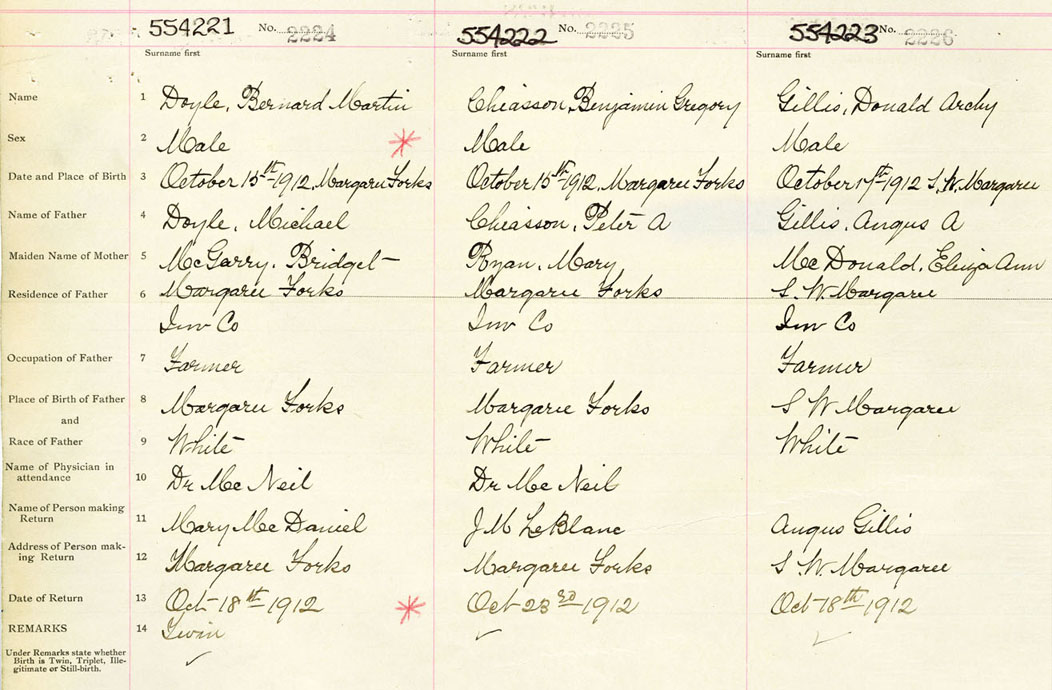 554221 No. 2224 554222 No. 2225 554223 No. 2226
Surname first Surname first Surname first
Name 1 Doyle, Bernard Martin Chiasson, Benjamin Gregory Gillis, Donald Archy
Sex 2 Male Male Male
Date and Place of Birth 3 October 15th 1912, Margaree Forks October 15th 1912, Margaree Forks October 17th 1912 S. W. Margaree
Name of Father 4 Doyle, Michael Chiasson, Peter A Gillis, Angus A
Maiden Name of Mother 5 McGarry, Bridget Ryan, Mary Mc Donald, Eliza Ann
Residence of Father 6 Margaree Forks Margaree Forks S. W. Margaree
Inv Co Inv Co Inv Co
Occupation of Father 7 Farmer Farmer Farmer
Place of Birth of Father 8 Margaree Forks Margaree Forks S W Margaree
and
Race of Father 9 White White White
Name of Physician in
attendance 10 Dr Mc Neil Dr Mc Neil
Name of Person making
Return 11 Mary Mc Daniel J M LeBlanc Angus Gillis
Address of Person mak-
ing Return 12 Margaree Forks Margaree Forks S W. Margaree
Date of Return 13 Oct 18th 1912 Oct 23rd 1912 Oct 18th 1912
REMARKS 14 Twin
Under Remarks state whether
Birth is Twin, Triplet, Ille-
gitimate or Still-birth.